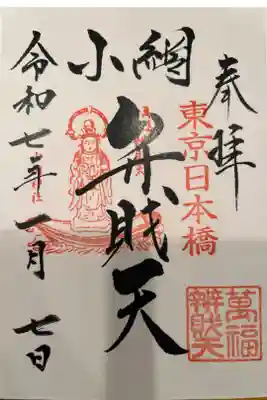 奉拝
東京日本橋
小網
弁財天
令和七年一月七日
萬福
辨財天